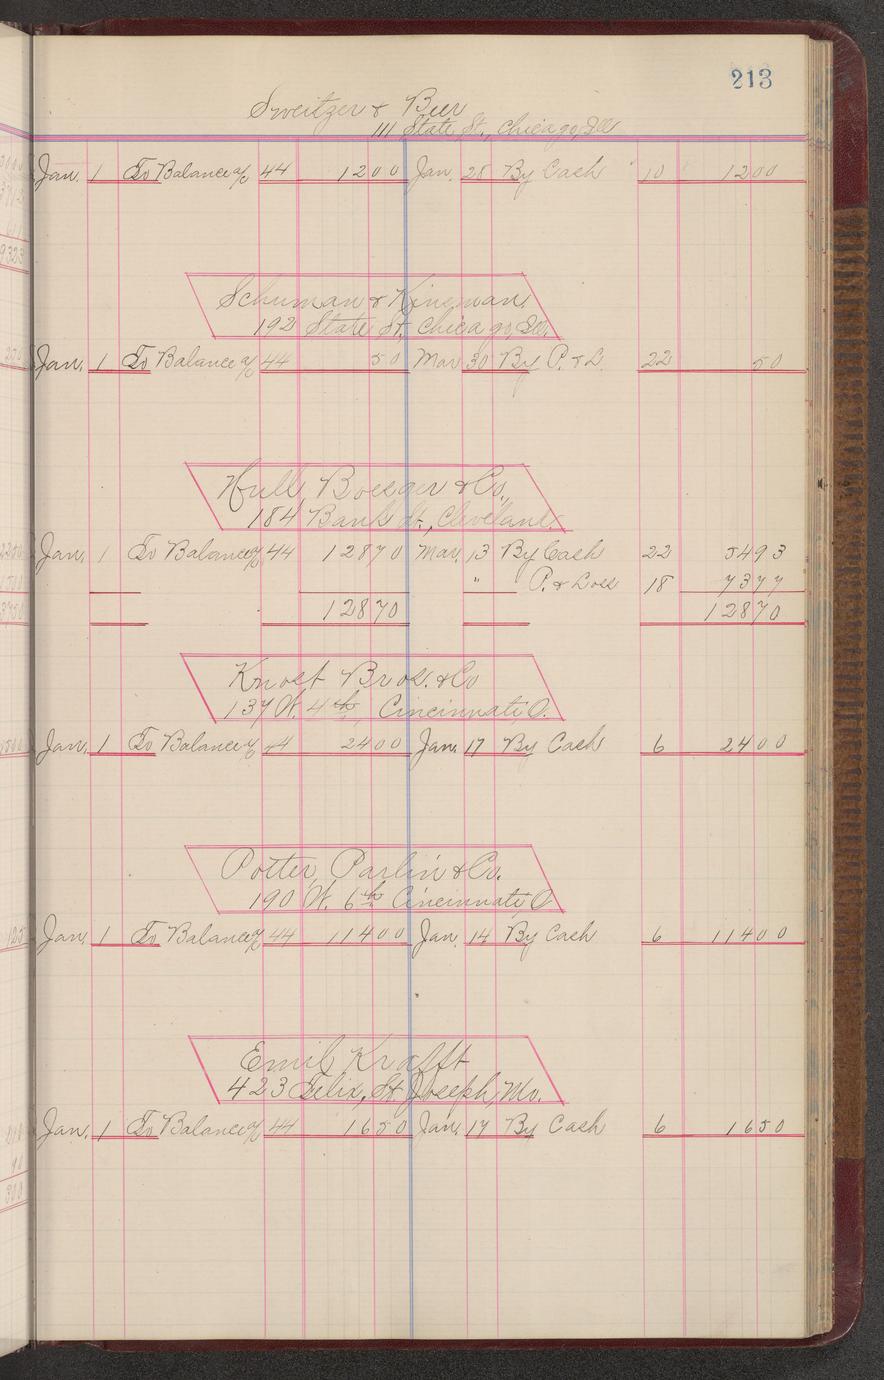 213
Sweitzer & Beer
111 State St., Chicago, Ill
Jan. 1 To Balance a/c 44 1200 Jan. 28 By Cash 10 1200
Schuman & Kingman
192 State St. Chicago, Ill.
Jan. 1 To Balance a/c 44 50 Mar 30 By P. & L. 22 50
Hull, Boesger & Co.,
184 Bank St., Cleveland.
Jan. 1 To Balance a/c 44 12870 Mar. 13 By Cash 22 5493
" P. & Loss 18 7377
12870 12870
Knost Bros. & Co
137 W. 4th, Cincinnati, O.
Jan. 1 To Balance a/c 44 2400 Jan. 17 By Cash 6 2400
Potter, Parlin & Co.
190 W. 6th Cincinnati, O
Jan. 1 To Balance a/c 44 11400 Jan. 14 By Cash 6 11400
Emil Krafft
423 Felix, St. Joseph, Mo.
Jan. 1 To Balance a/c 44 1650 Jan. 17 By Cash 6 1650